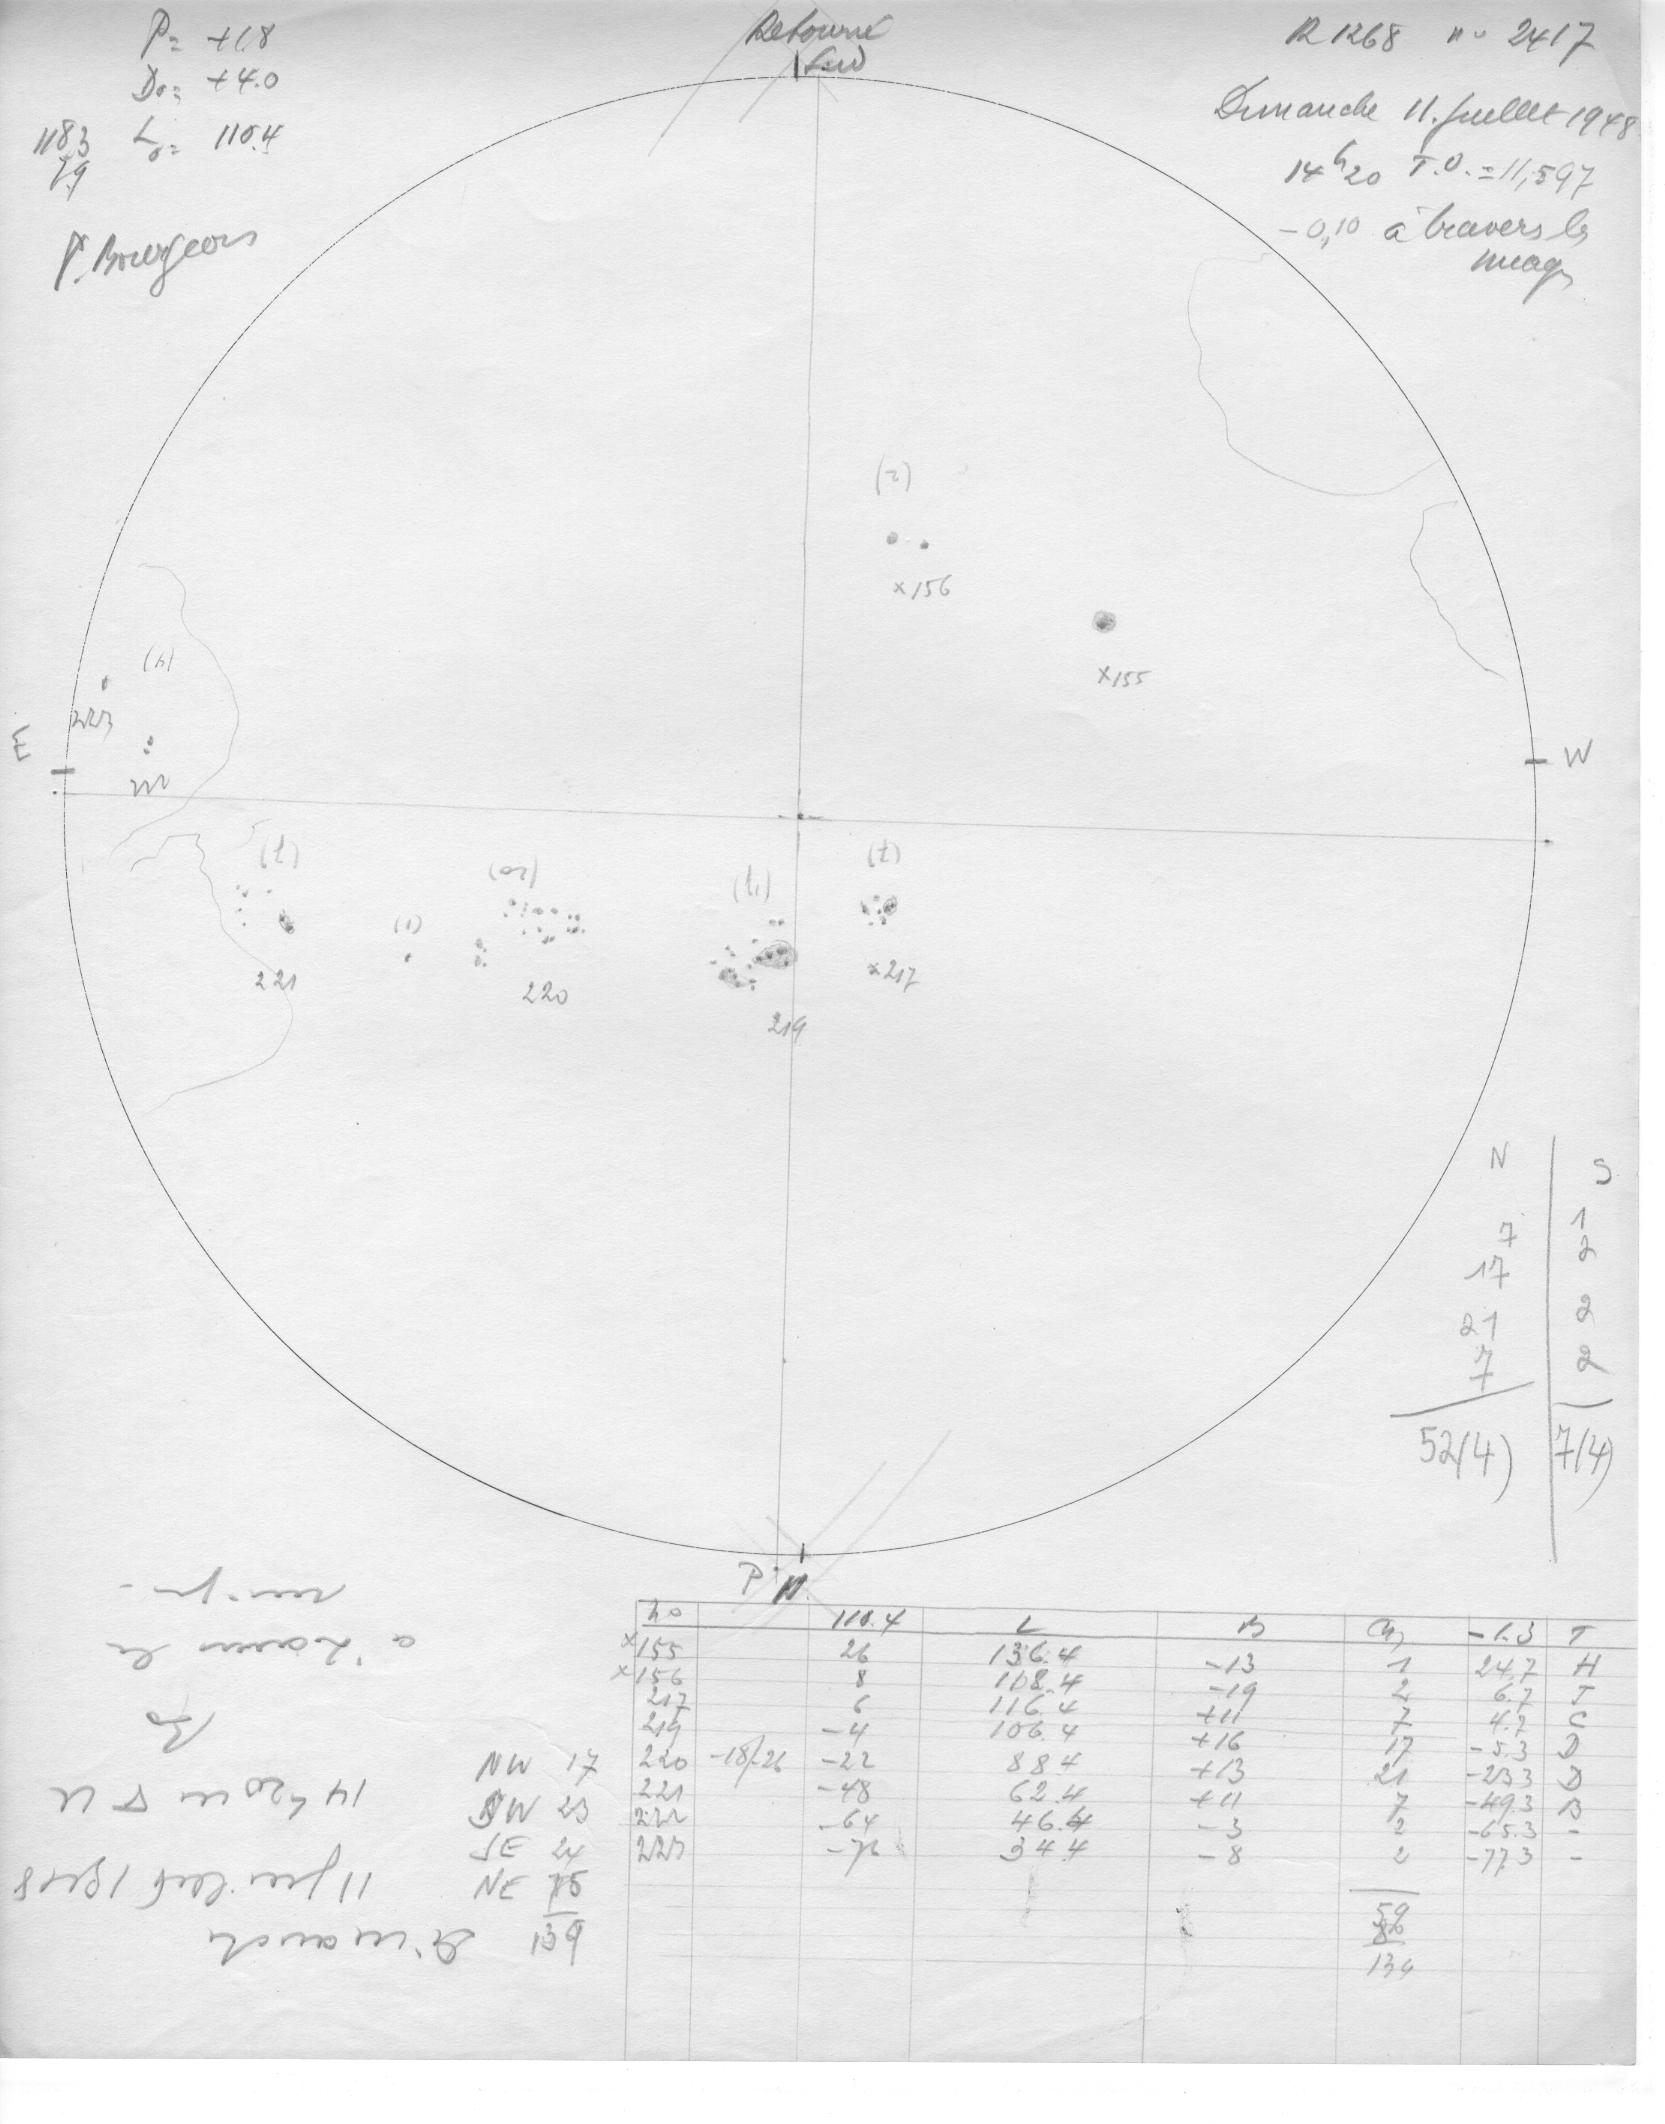 P= +1.8
D₀= +4.0
118.3 L₀= 110.4
7.9
P. Bourgeois
Retourné
Sud
R 1268 n° 2417
Dimanche 11 Juillet 1948
14h20 T.U. = 11,597
-0,10 à travers les
nuages
(2)
×156
×155
(2)
223
222
E
W
(7)
221
(1)
(20)
220
(17)
219
(7)
×217
N S
7 1
17 2
21 2
7 2
52(4) 7(4)
P N
No 110.4 L B -1.3 T
×155 26 136.4 -13 1 24.7 H
×156 8 118.4 -19 2 6.7 J
217 6 116.4 +11 7 4.7 C
219 -4 106.4 +16 17 -5.3 D
220 -18/-26 -22 88.4 +13 21 -23.3 D
221 -48 62.4 +11 7 -49.3 B
222 -64 46.4 -3 2 -65.3 -
223 -76 34.4 -8 2 -77.3 -
59
80
139
NW 17
SW 23
SE 24
NE 75
139
Dimanche
11 juillet 1948
14h20m T U
à travers les
nuages